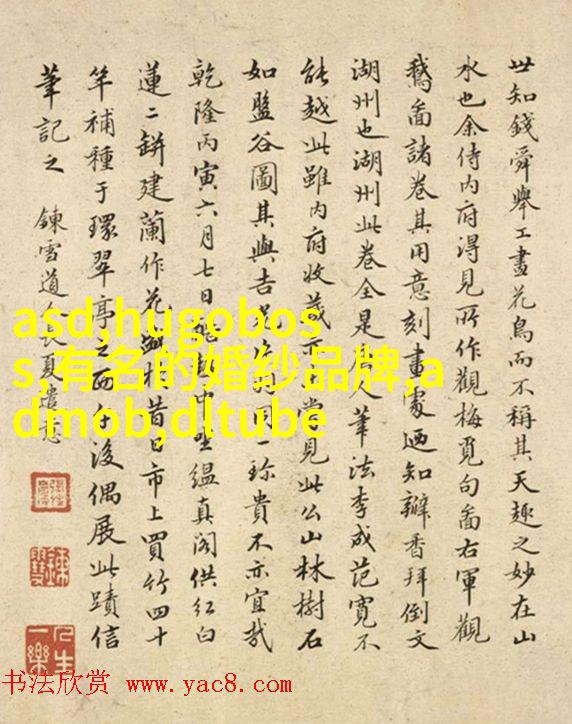 世知錢舜舉工畫花鳥而不稱其天趣之妙在山
水也余侍内府得見所作觀梅覓句啚右軍觀
鵝啚諸卷其用意刻畫處迺知瓣香拜倒文
湖州也湖州此卷全是人筆法李成范寬不
能越此雖内府收藏亦嘗見此公山林樹石
如盤谷圖其與吉珍貴不亦宜哉
乾隆丙寅六月七日中坐緼真阁供红白
蓮二缾建蘭作花昔日市上買竹四十
竿補種于環翠亭之西後偶展此蹟信
筆記之 鍊雪道長夏遣
人生一樂
asd,hugobos
s,有名的婚纱品牌,a
dmob,dltube
书法欣赏 www.yac8.com